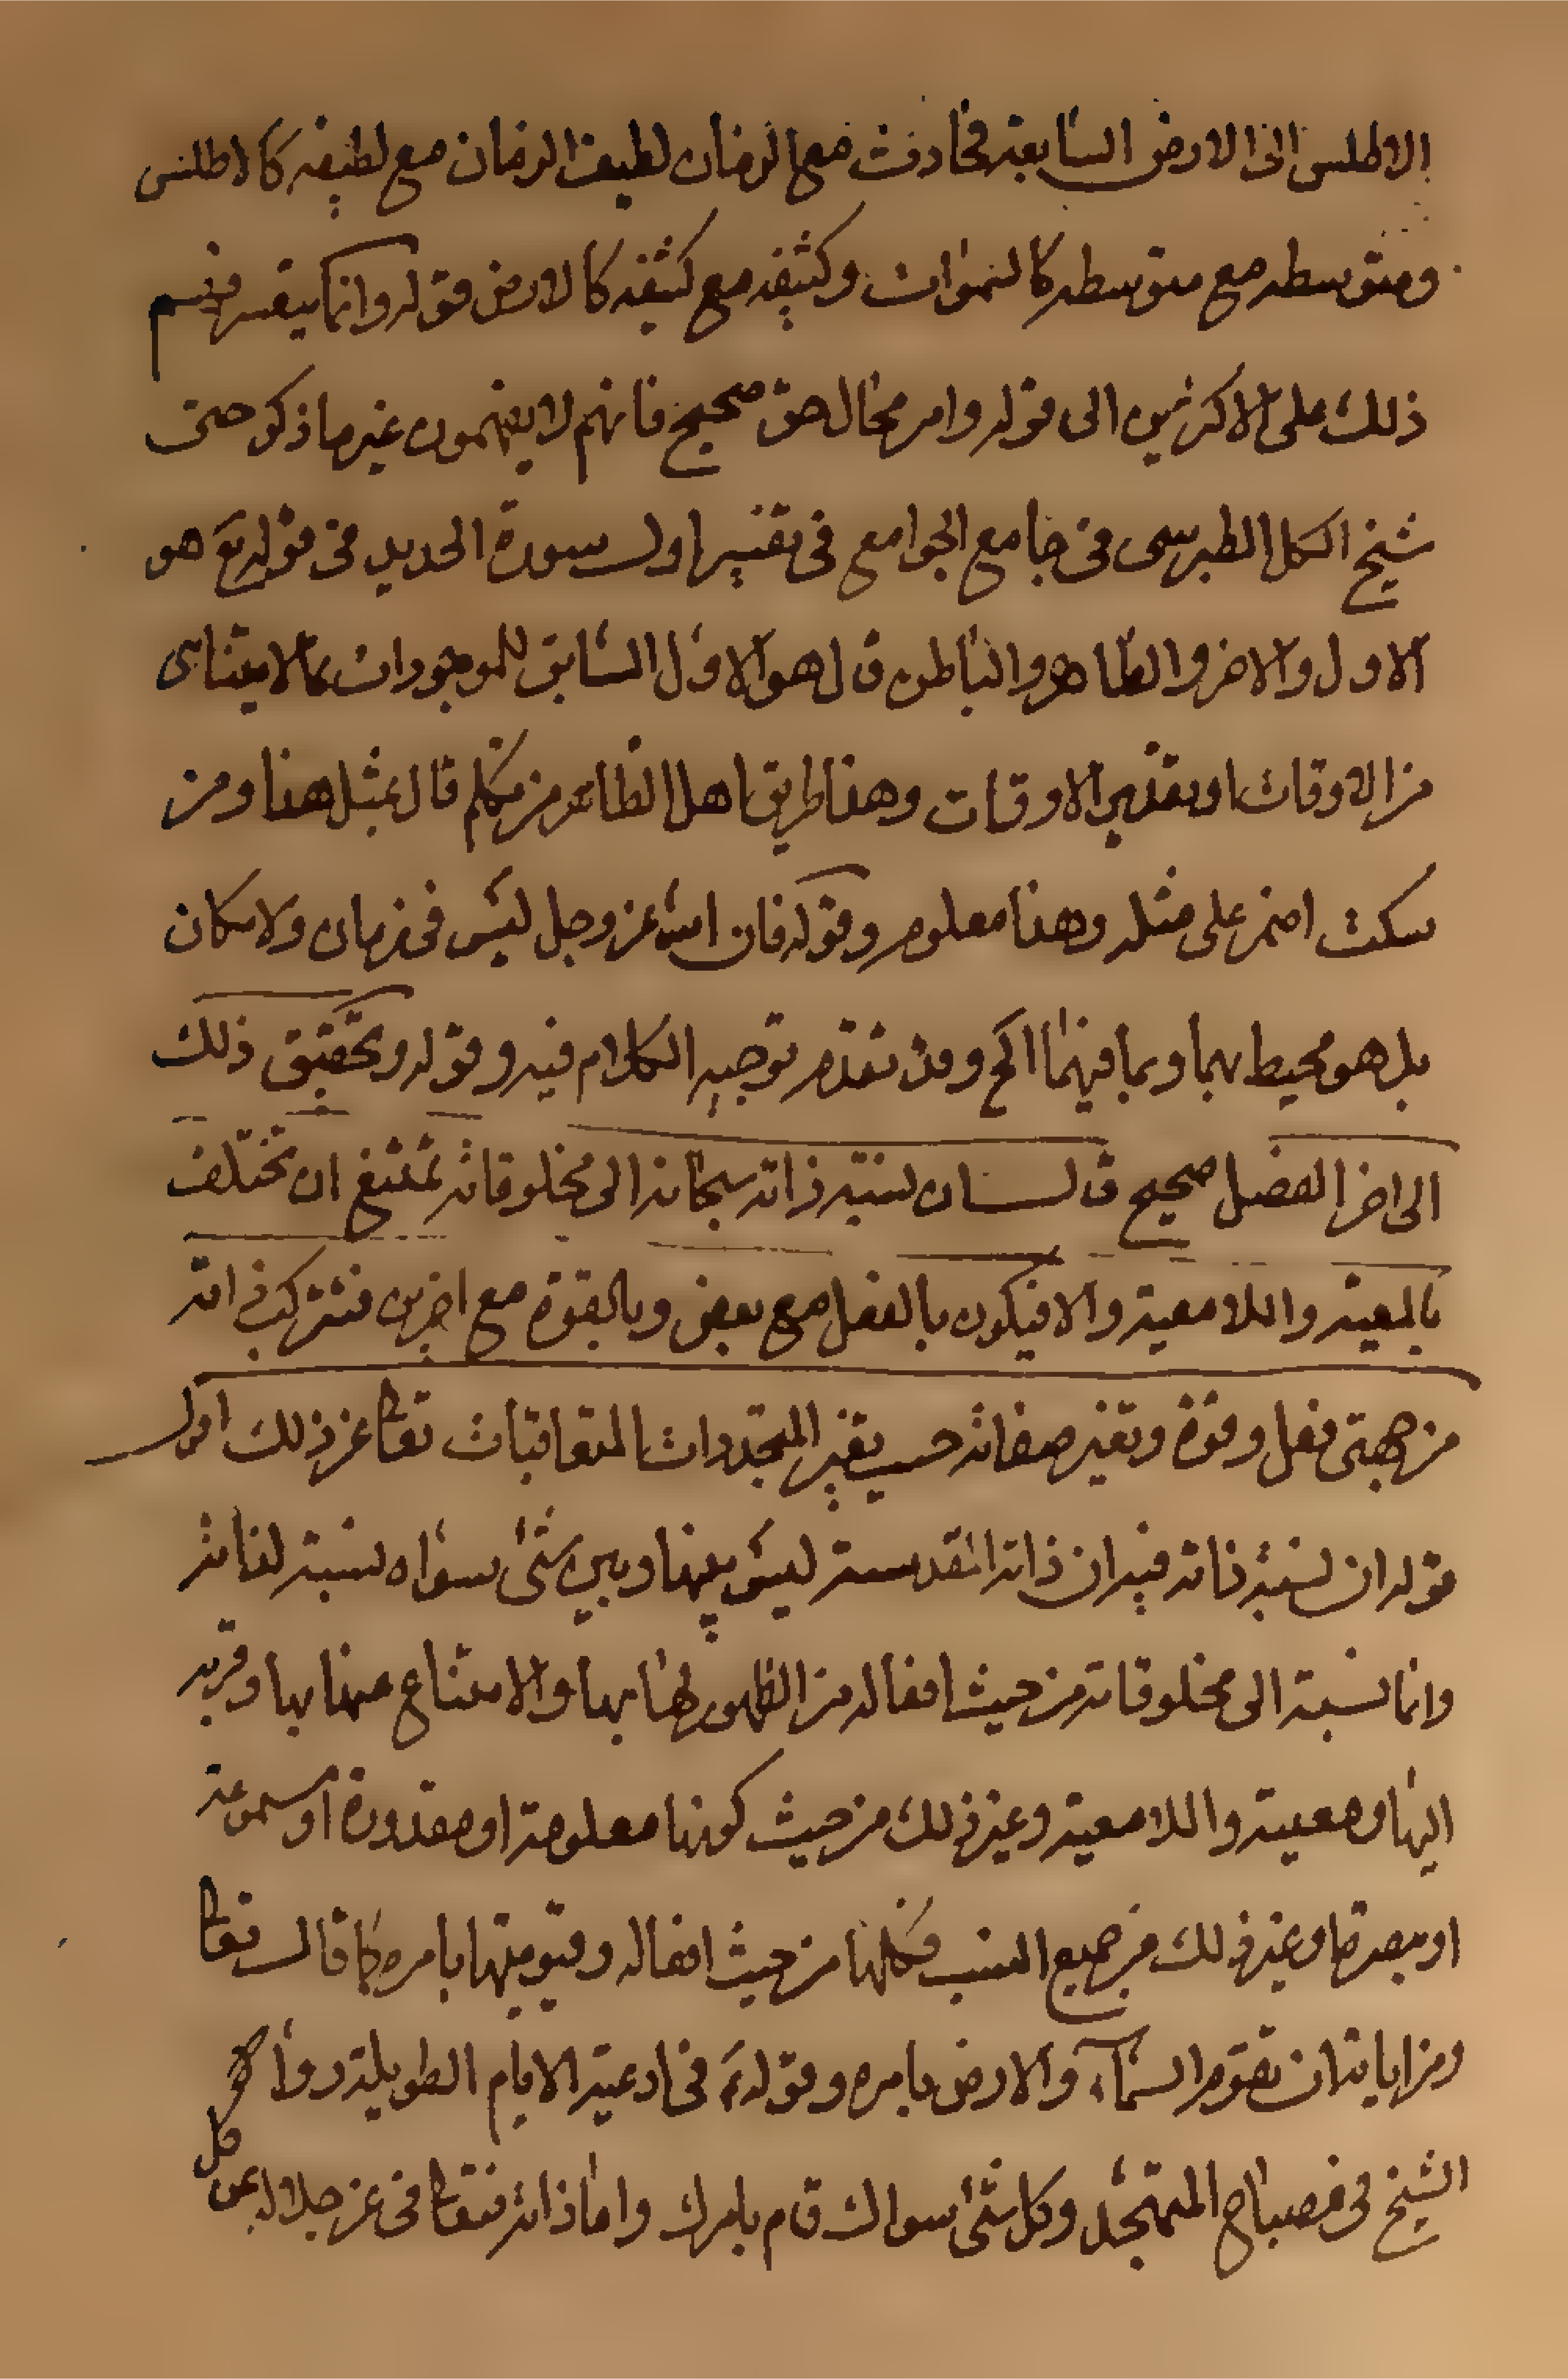 الاطلس الى الارض السابعة فحادث مع الزمان لطيف الزمان مع لطيفه كالاطلس
ومتوسطه مع متوسطه كالسموات وكثيفه مع كثيفه كالارض فقوله وانما يتعسر فهم
ذلك على الاكثرين الى قوله وامر محال حق صحيح فانهم لا يفهمون غير ما ذكر حتى
شيخ الكل الطبرسى فى جامع الجوامع فى تفسير اول سورة الحديد فى قوله تع هو
الاول والاخر والظاهر والباطن قال هو الاول السابق للموجودات بما لا يتناهى
من الاوقات او تقدير الاوقات وهذا طريق اهل الظاهر من تكلم قال بمثل هذا ومن
سكت اضمر على مثله وهذا معلوم وقوله فان الله عز وجل ليس فى زمان ولا مكان
بل هو محيط بهما وبما فيهما الخ وقد تقدم توجيه الكلام فيه وقوله وتحقيق ذلك
الى اخر الفصل صحيح قال ان نسبة ذاته سبحانه الى مخلوقاته تمتنع ان تختلف
بالمعية واللامعية والا فيكون بالفعل مع بعض وبالقوة مع اخرين فتتركب ذاته
من جهتى فعل وقوة وتغير صفاته حسب تغير المتجددات المتعاقبات تعالى عن ذلك اقول
قوله ان نسبة ذاته فيه ان ذاته المقدسة ليس بينها وبين شئ سواه نسبة لذاته
وانما نسبة الى مخلوقاته من حيث افعاله من الظهور لها بها والامتناع منها بها وقربه
اليها ومعية واللامعية وغير ذلك من حيث كونها معلومة او مقدورة او مسموعة
او مبصرة او غير ذلك من جميع النسب فكلها من حيث افعاله وقيوميتها بامره كما قال تعالى
ومن اياته ان تقوم السماء والارض بامره وقوله ع فى ادعية الايام الطويلة رواه
الشيخ فى مصباح المتهجد وكل شئ سواك قام بامرك واما ذاته فتعالى فى عز جلاله عن كل